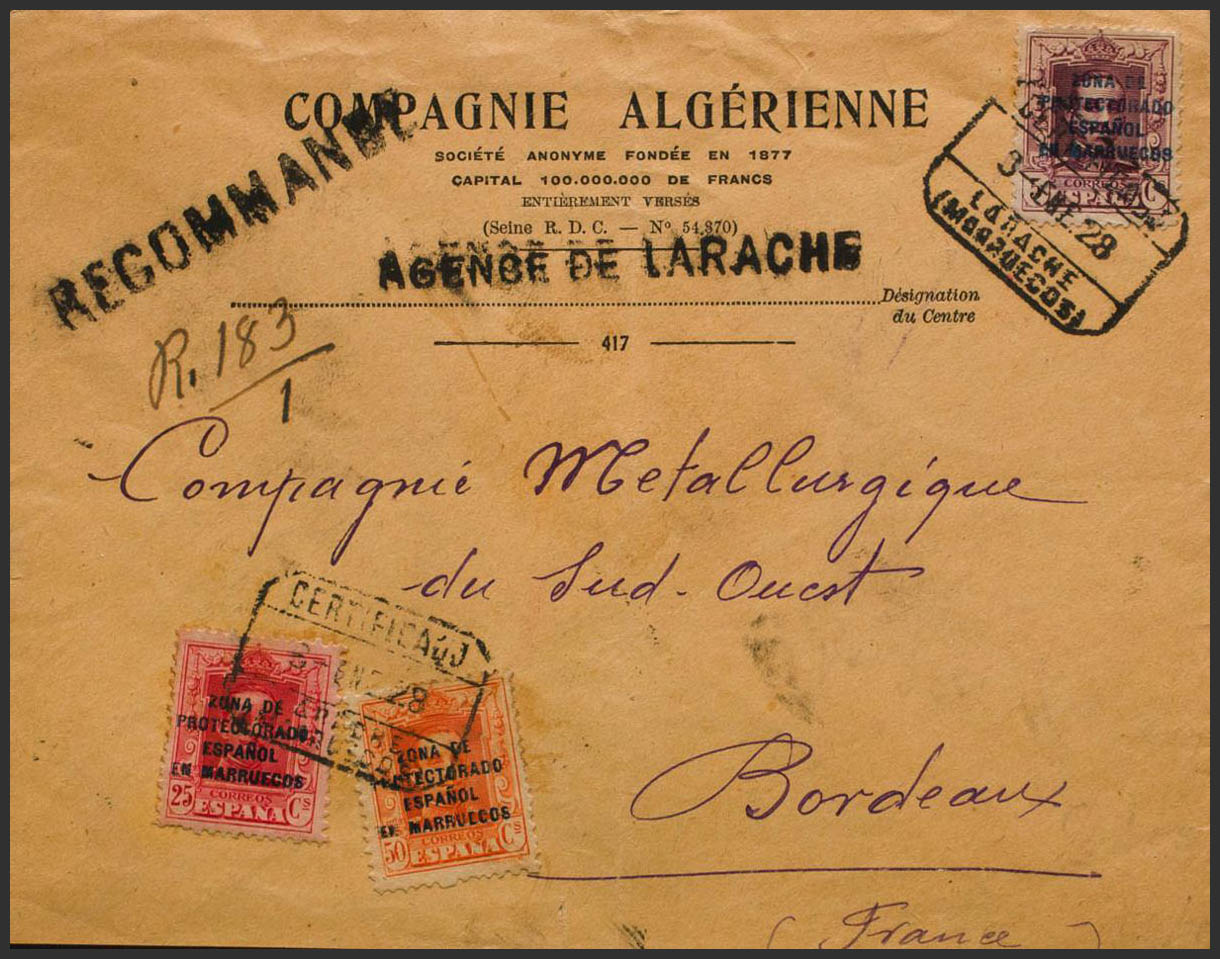 COMPAGNIE ALGÉRIENNE
SOCIÉTÉ ANONYME FONDÉE EN 1877
CAPITAL 100.000.000 DE FRANCS
ENTIÈREMENT VERSÉS
(Seine R. D. C. — Nº 54.870)
AGENCE DE LARACHE
Désignation
du Centre
417
RECOMMANDE
R. 183
1
ZONA DE
PROTECTORADO
ESPAÑOL
EN MARRUECOS
CORREOS
ESPAÑA Cs
3 ENE. 28
LARACHE
(MARRUECOS)
Compagnie Metallurgique
du Sud-Ouest
Bordeaux
(France)
CERTIFICADO
3 ENE 28
ZONA DE
PROTECTORADO
ESPAÑOL
EN MARRUECOS
CORREOS
25 ESPAÑA Cs
ZONA DE
PROTECTORADO
ESPAÑOL
EN MARRUECOS
CORREOS
50 ESPAÑA Cs